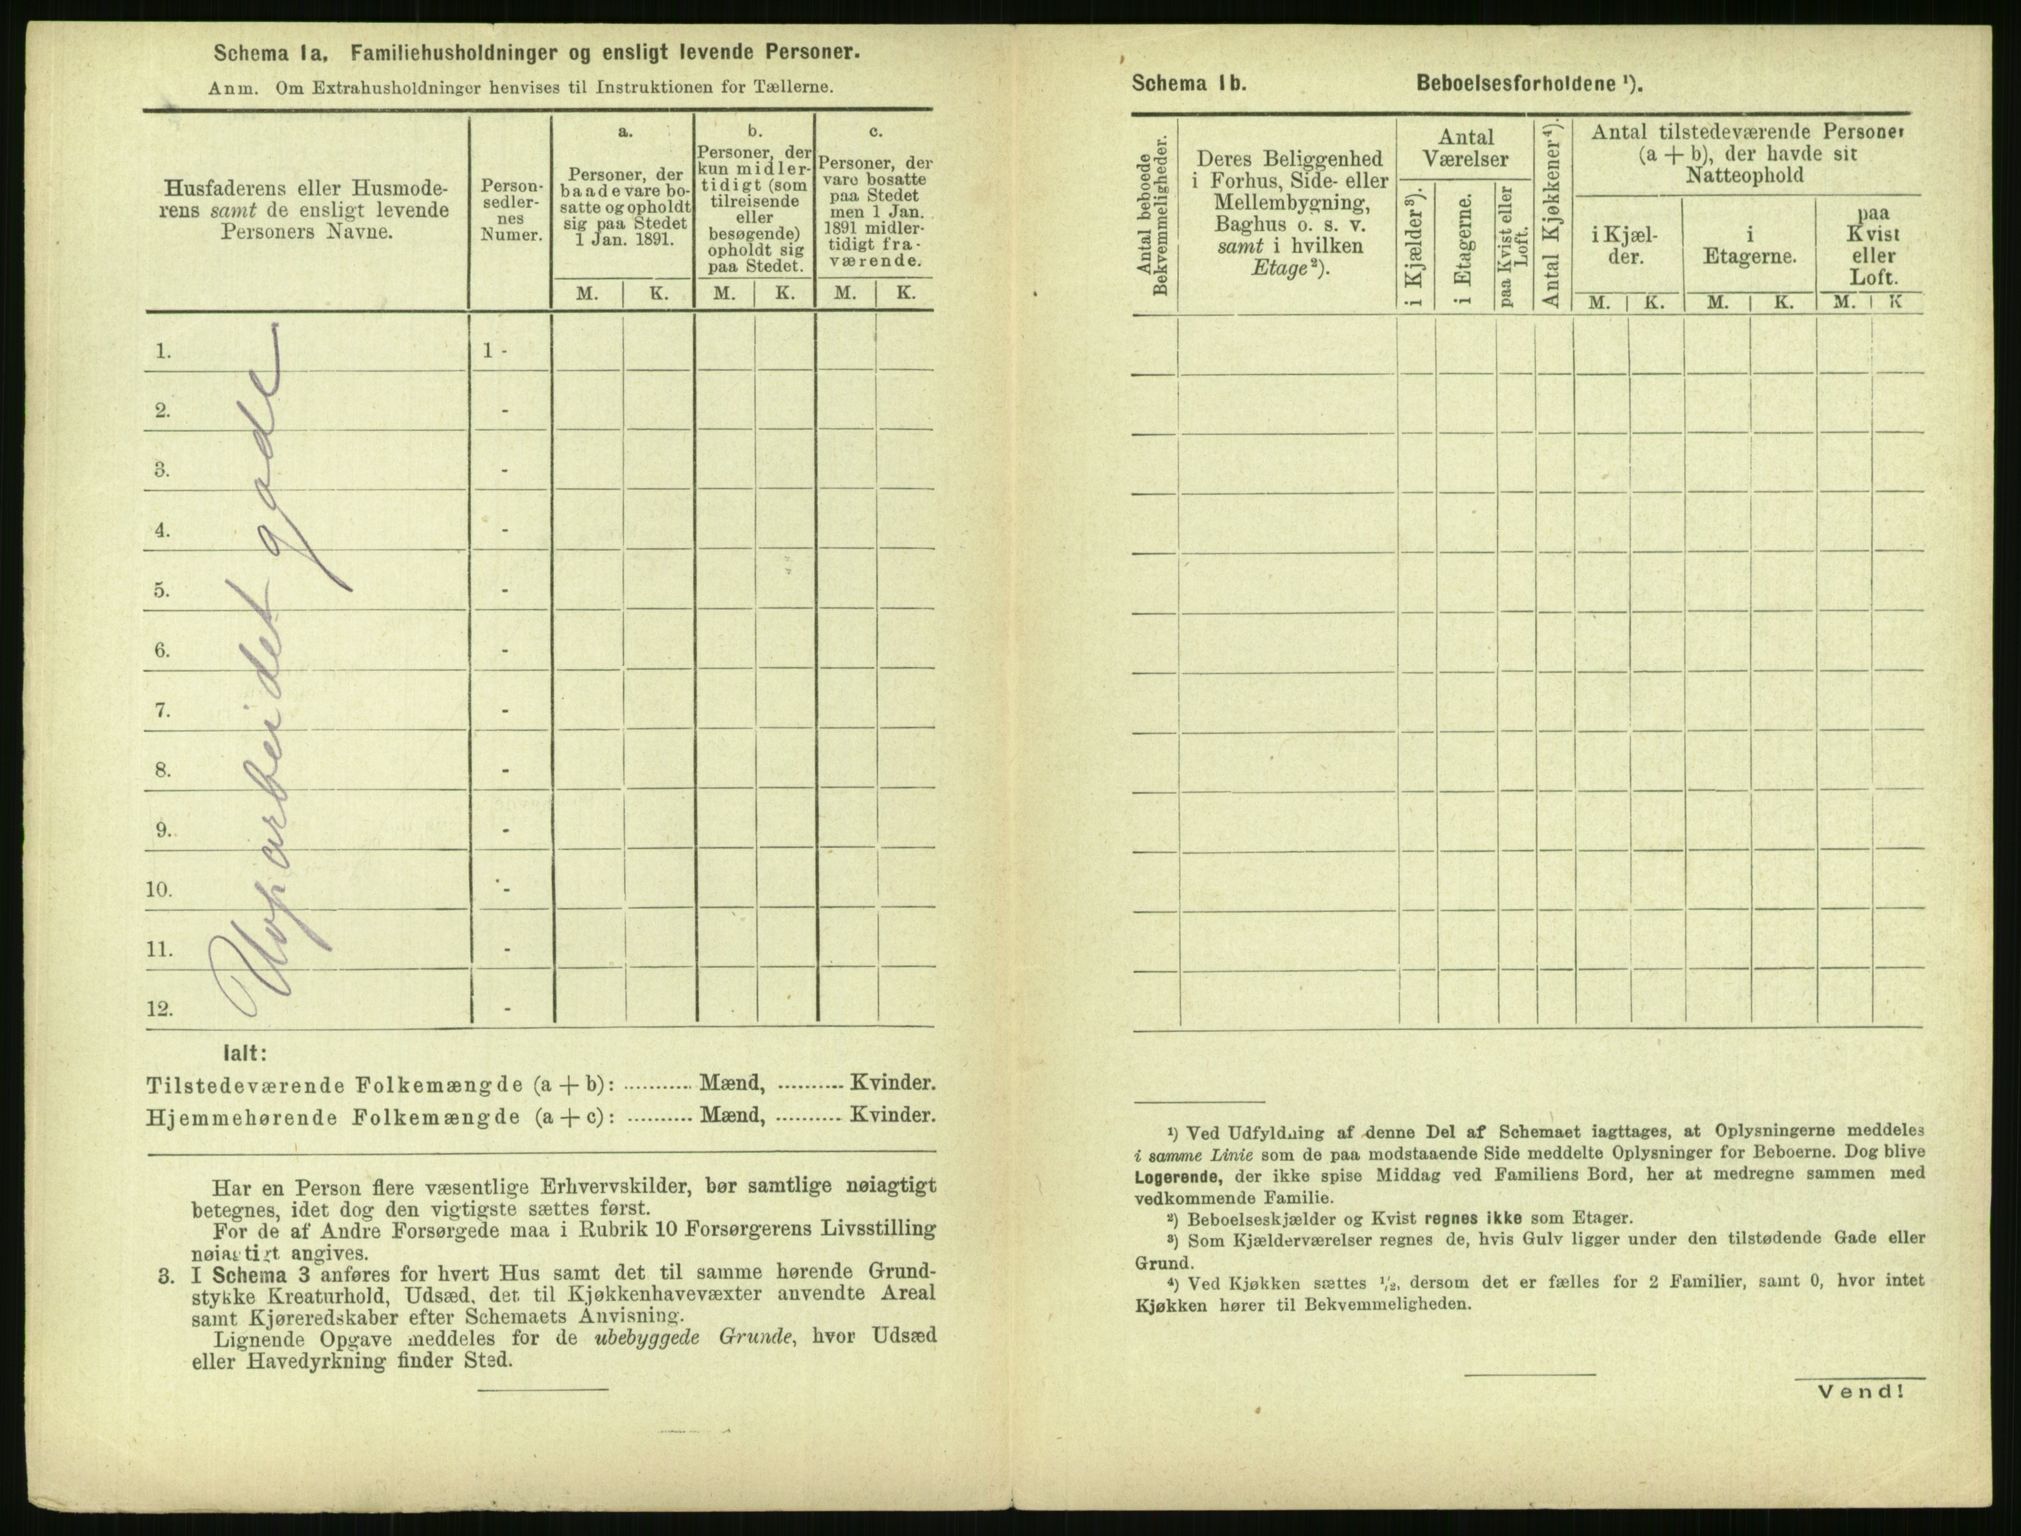 Schema 1a. Familiehusholdninger og ensligt levende Personer.
Anm. Om Extrahusholdninger henvises til Instruktionen for Tællerne.
Husfaderens eller Husmode-
rens samt de ensligt levende
Personers Navne.
Person-
sedler-
nes
Numer.
a.
Personer, der
baade vare bo-
satte og opholdt
sig paa Stedet
1 Jan. 1891.
M. K.
b.
Personer, der
kun midler-
tidigt (som
tilreisende
eller
besøgende)
opholdt sig
paa Stedet.
M. K.
c.
Personer, der
vare bosatte
paa Stedet
men 1 Jan.
1891 midler-
tidigt fra-
værende.
M. K.
1. 1 -
2. -
3. -
4. -
5. -
6. -
7. -
8. -
9. -
10. -
11. -
12. -
Uoparbeidet gade
Ialt:
Tilstedeværende Folkemængde (a + b): ........... Mænd, ........... Kvinder.
Hjemmehørende Folkemængde (a + c): ........... Mænd, ........... Kvinder.
Har en Person flere væsentlige Erhvervskilder, bør samtlige nøiagtigt
betegnes, idet dog den vigtigste sættes først.
For de af Andre Forsørgede maa i Rubrik 10 Forsørgerens Livsstilling
nøiagtigt angives.
3. I Schema 3 anføres for hvert Hus samt det til samme hørende Grund-
stykke Kreaturhold, Udsæd, det til Kjøkkenhavevæxter anvendte Areal
samt Kjøreredskaber efter Schemaets Anvisning.
Lignende Opgave meddeles for de ubebyggede Grunde, hvor Udsæd
eller Havedyrkning finder Sted.
Schema 1b. Beboelsesforholdene ¹).
Antal beboede
Bekvemmeligheder.
Deres Beliggenhed
i Forhus, Side- eller
Mellembygning,
Baghus o. s. v.
samt i hvilken
Etage ²).
Antal
Værelser
i Kjælder ³).
i Etagerne.
paa Kvist eller
Loft.
Antal Kjøkkener ⁴).
Antal tilstedeværende Personer
(a + b), der havde sit
Natteophold
i Kjæl-
der.
M. K.
i
Etagerne.
M. K.
paa
Kvist
eller
Loft.
M. K
¹) Ved Udfyldning af denne Del af Schemaet iagttages, at Oplysningerne meddeles
i samme Linie som de paa modstaaende Side meddelte Oplysninger for Beboerne. Dog blive
Logerende, der ikke spise Middag ved Familiens Bord, her at medregne sammen med
vedkommende Familie.
²) Beboelseskjælder og Kvist regnes ikke som Etager.
³) Som Kjælderværelser regnes de, hvis Gulv ligger under den tilstødende Gade eller
Grund.
⁴) Ved Kjøkken sættes ¹/₂, dersom det er fælles for 2 Familier, samt 0, hvor intet
Kjøkken hører til Bekvemmeligheden.
Vend!